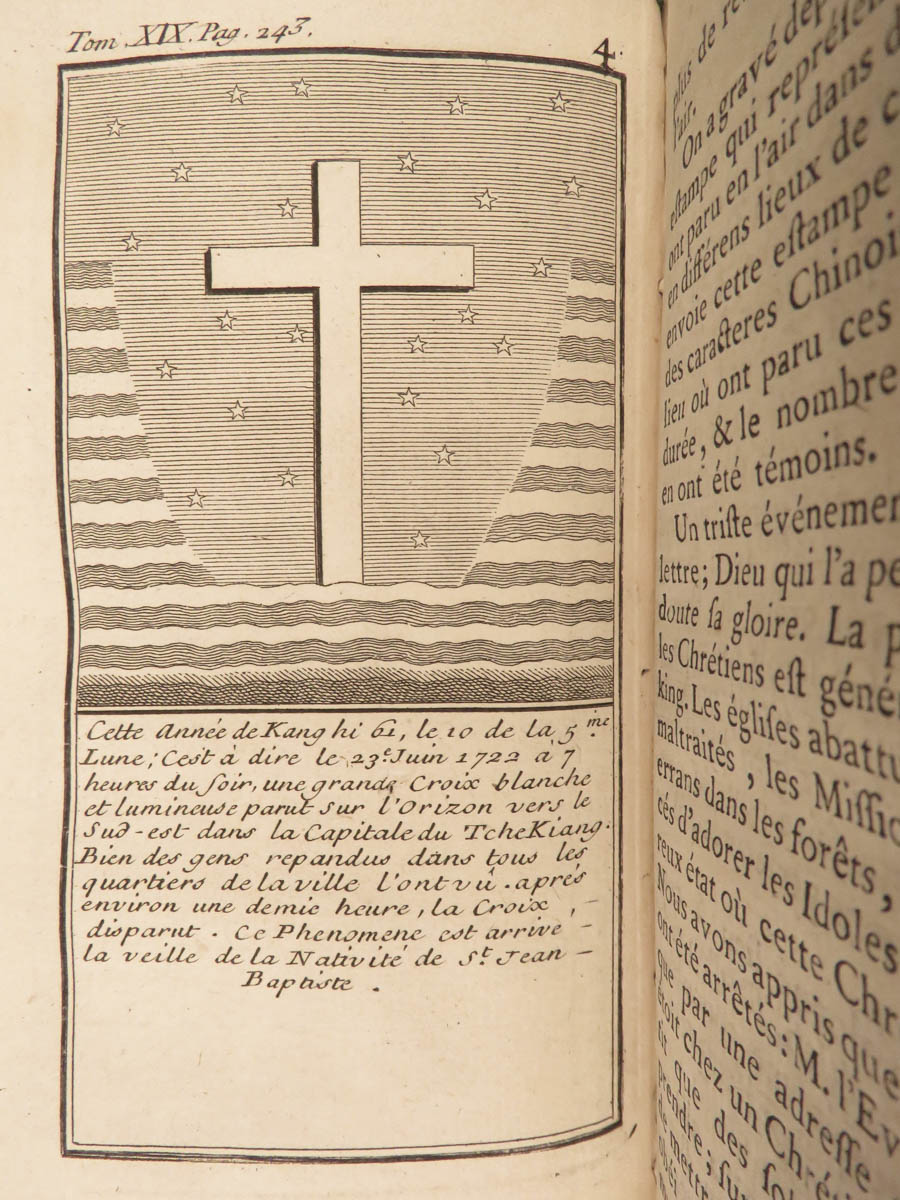 Tom. XIX. Pag. 243.
4.
Cette Année de Kang hi 61, le 10 de la 5.me
Lune; C'est à dire le 23.e Juin 1722 à 7
heures du soir, une grande Croix blanche
et lumineuse parut sur l'Orizon vers le
Sud-est dans la Capitale du TcheKiang.
Bien des gens repandus dans tous les
quartiers de la ville l'ont vû. aprés
environ une demie heure, la Croix, –
disparut. Ce Phenomene est arrivé –
la veille de la Nativité de St. Jean –
Baptiste.
plus de
l'air.
On a gravé
eſtampe qui
ont paru en l'air dans
en différens lieux de
envoie cette eſtampe
des caracteres Chinoi
lieu où ont paru ces
durée, & le nombre
en ont été témoins.
Un triſte événemen
lettre; Dieu qui l'a pe
doute ſa gloire. La p
les Chrétiens eſt géné
king. Les égliſes abattu
maltraités, les Miſſio
errans dans les forêts,
cés d'adorer les Idoles
reux état où cette Chr
Nous avons appris que
ont été arrêtés: M. l'Ev
que par une adreſſe
étoit chez un Chré
tit que des ſo
prendre; ſu
de mettr